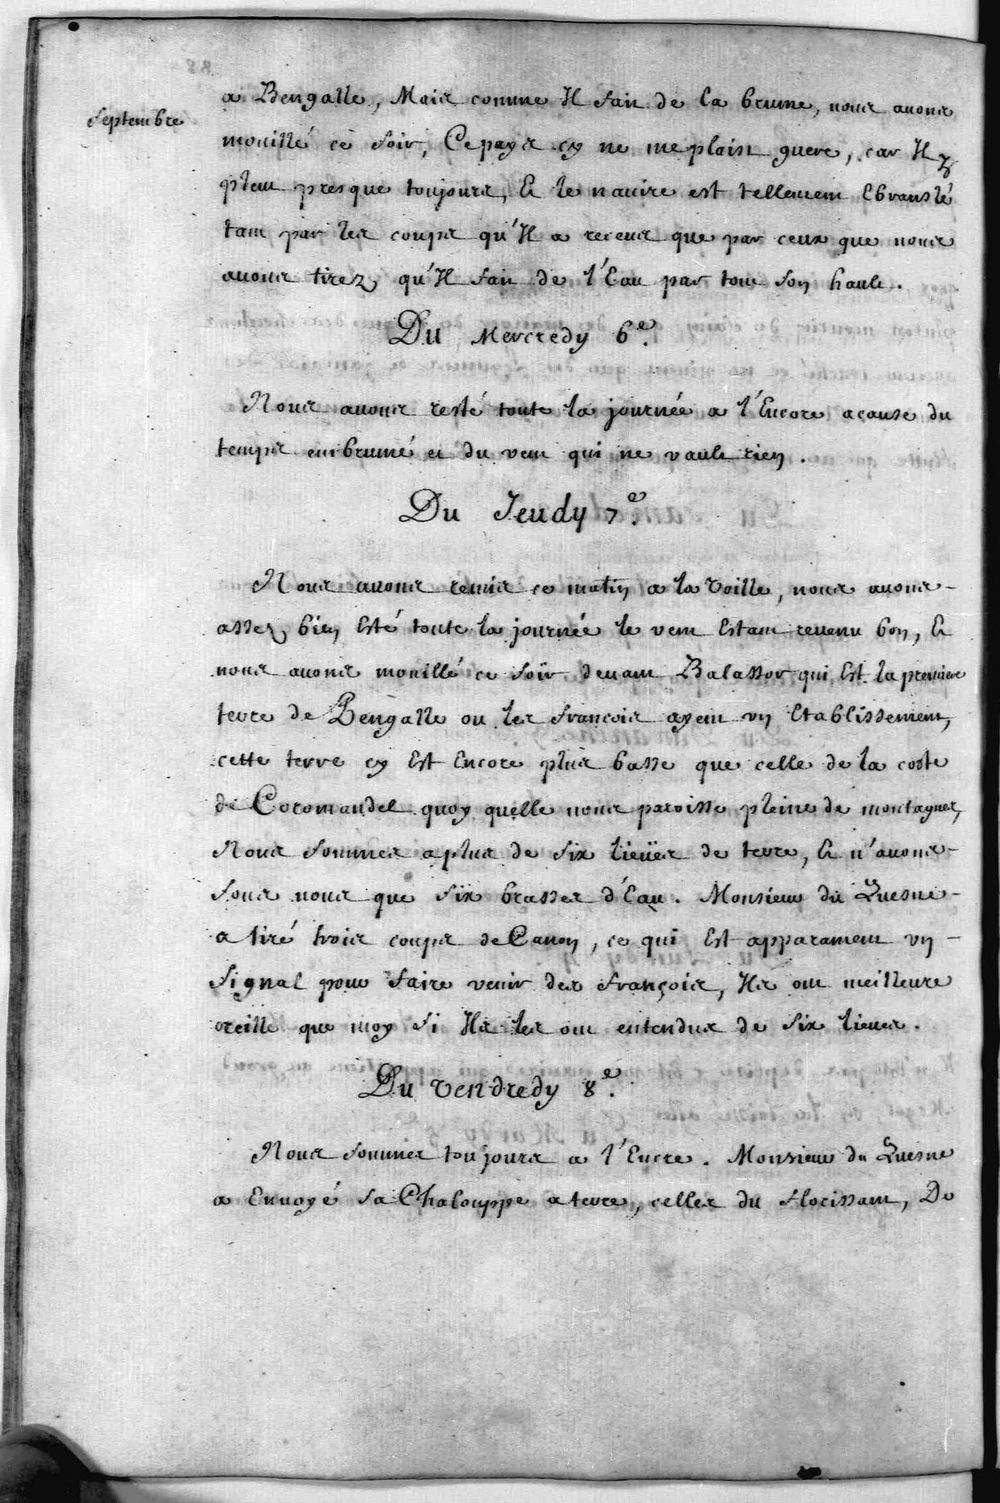 Septembre
a Bengalle, Mais comme Il fait de la brume, nous avons
mouillé ce soir, Ce pays cy ne me plaist guere, car Il y
pleut presque toujours, Et le navire est tellement Ebranslé
tant par les coups qu'Il a receus que par ceux que nous
avons tirez, qu'Il fait de l'Eau par tout son hault.
Du Mercredy 6e.
Nous avons resté toute la journée a l'Encre acause du
temps embrumé et du vent qui ne vault rien.
Du Jeudy 7e.
Nous avons remis ce matin a la Voille, nous avons
assez bien Esté toute la journée le vent Estant revenu bon, Et
nous avons mouillé ce soir devant Balassor qui Est la premiere
terre de Bengalle ou les francois ayent vn Etablissement,
cette terre cy Est Encore plus basse que celle de la coste
de Coromandel quoy quelle nous paroisse pleine de montagnes,
Nous sommes a plus de six lieües de terre, Et n'avons
sous nous que six brasses d'Eau. Monsieur du Quesne
a tiré trois coups de Canon, ce qui Est apparament vn
signal pour faire venir des françois, Ils ont meilleure
oreille que moy si Ils les ont entendus de six lieues.
Du Vendredy 8e.
Nous sommes toujours a l'Encre. Monsieur du Quesne
a Envoyé sa Chalouppe a terre, celles du florissant, Du